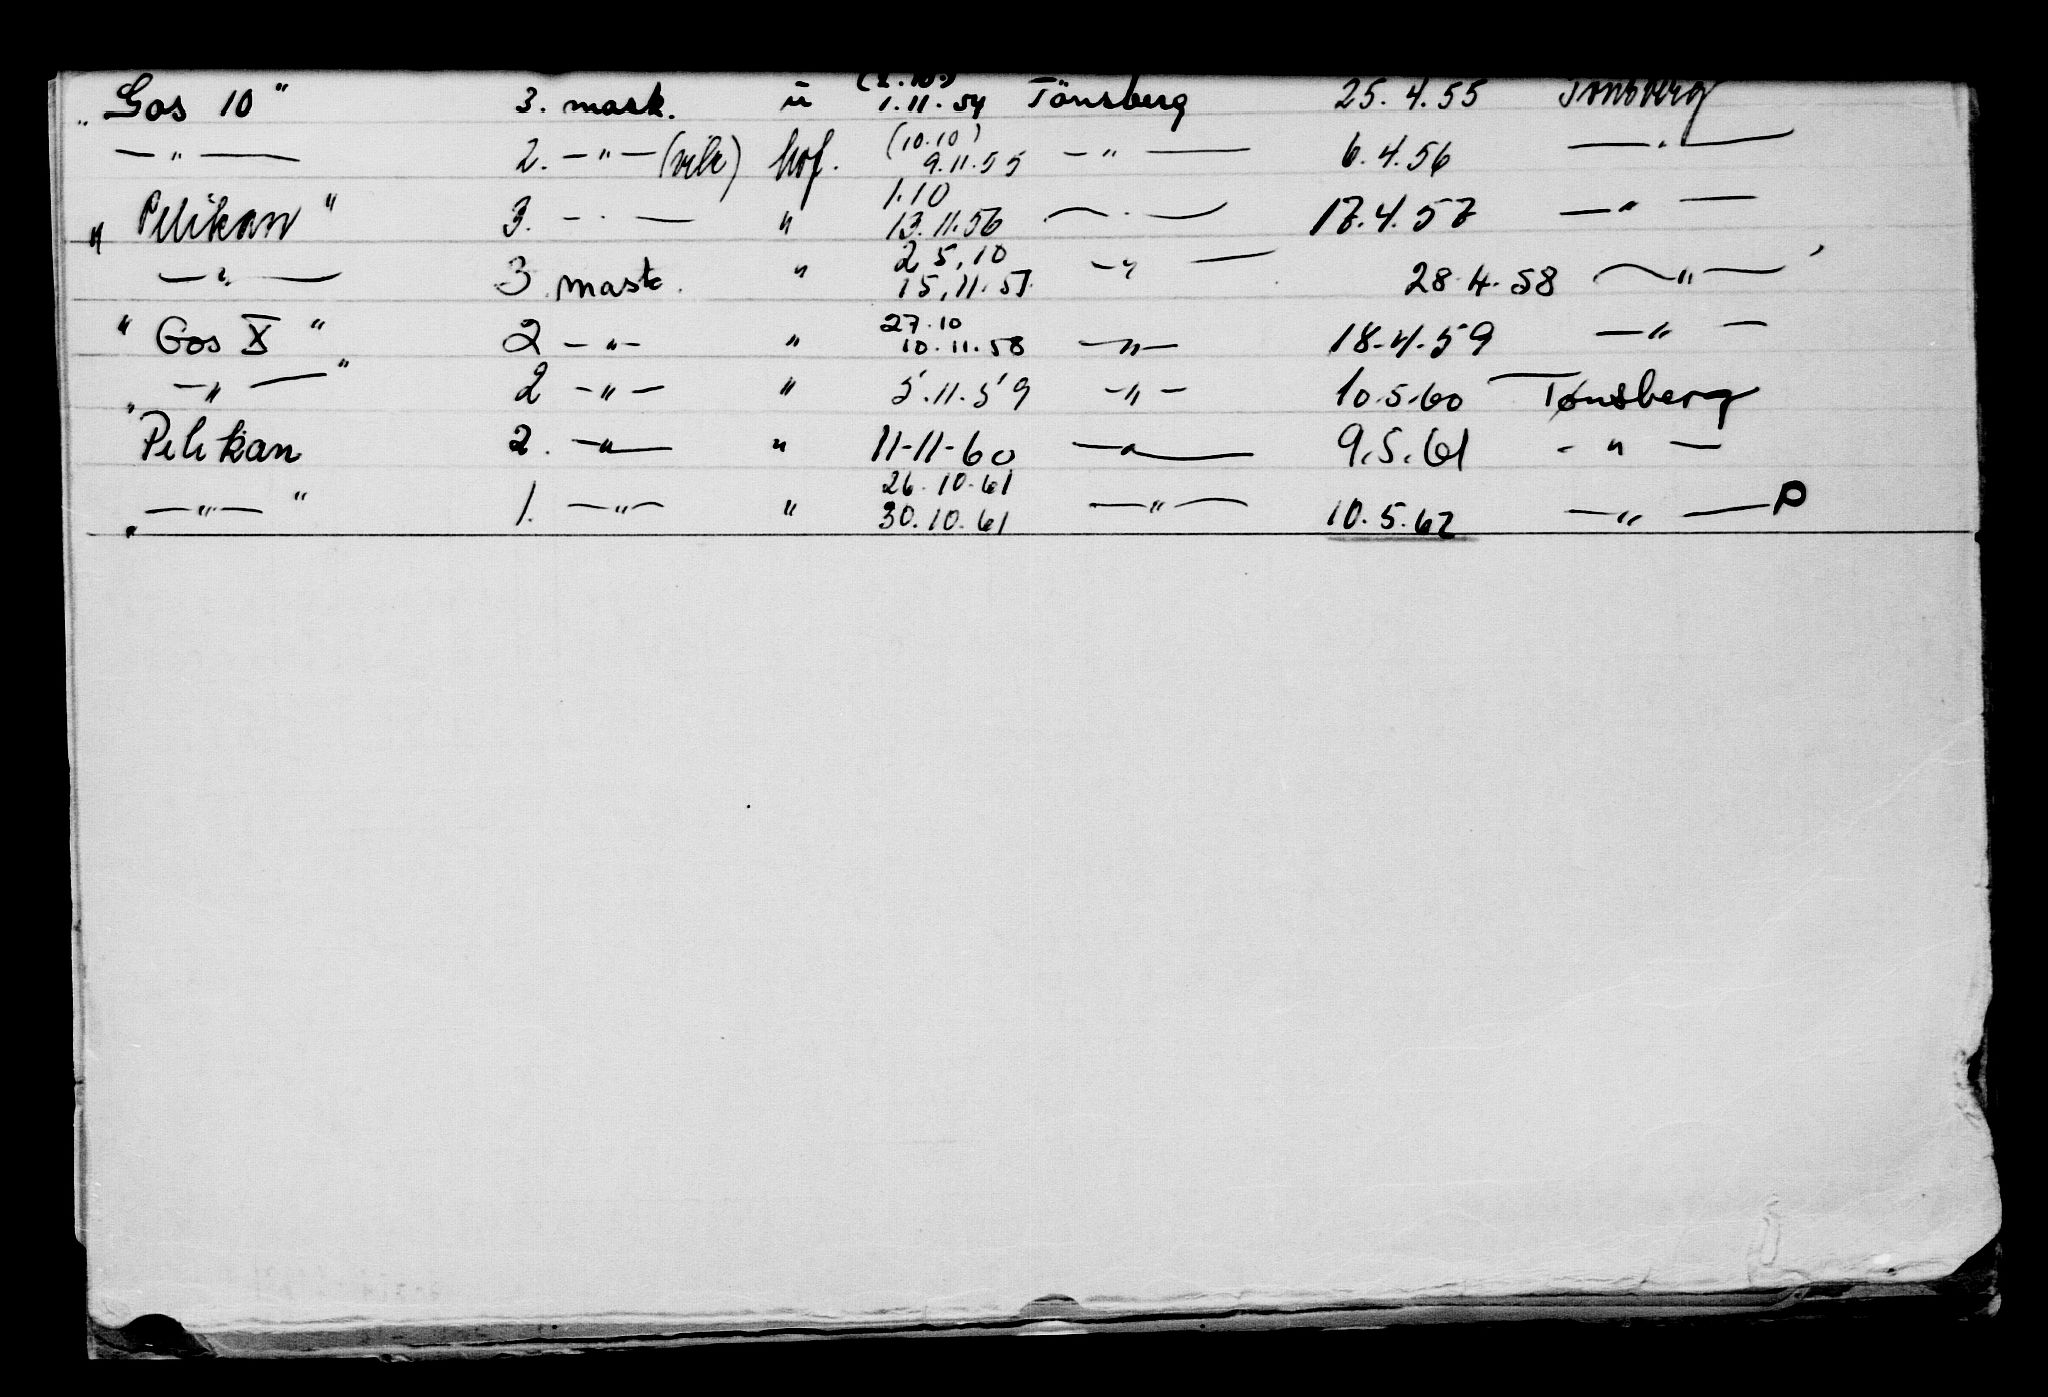 "Gos 10" 3. mask. u (2.10.) 1.11.54 Tönsberg 25.4.55 Tönsberg
— " — 2. — " — (vik) hof. (10.10) 9.11.55 — " — 6.4.56 — " —
" Pelikan " 3. — " — " 1.10 13.11.56 — " — 17.4.57 — " —
— " — 3 mask. " 25.10 15.11.57. — " — 28.4.58 — " —
" Gos X " 2 — " — " 27.10 10.11.58 — " — 18.4.59 — " —
" — " — " 2 — " — " 5.11.59 — " — 10.5.60 Tønsberg
" Pelikan 2. — " — " 11-11-60 — " — 9.5.61 — " —
" — " — " 1. — " — " 26.10.61 30.10.61 — " — 10.5.62 — " — P